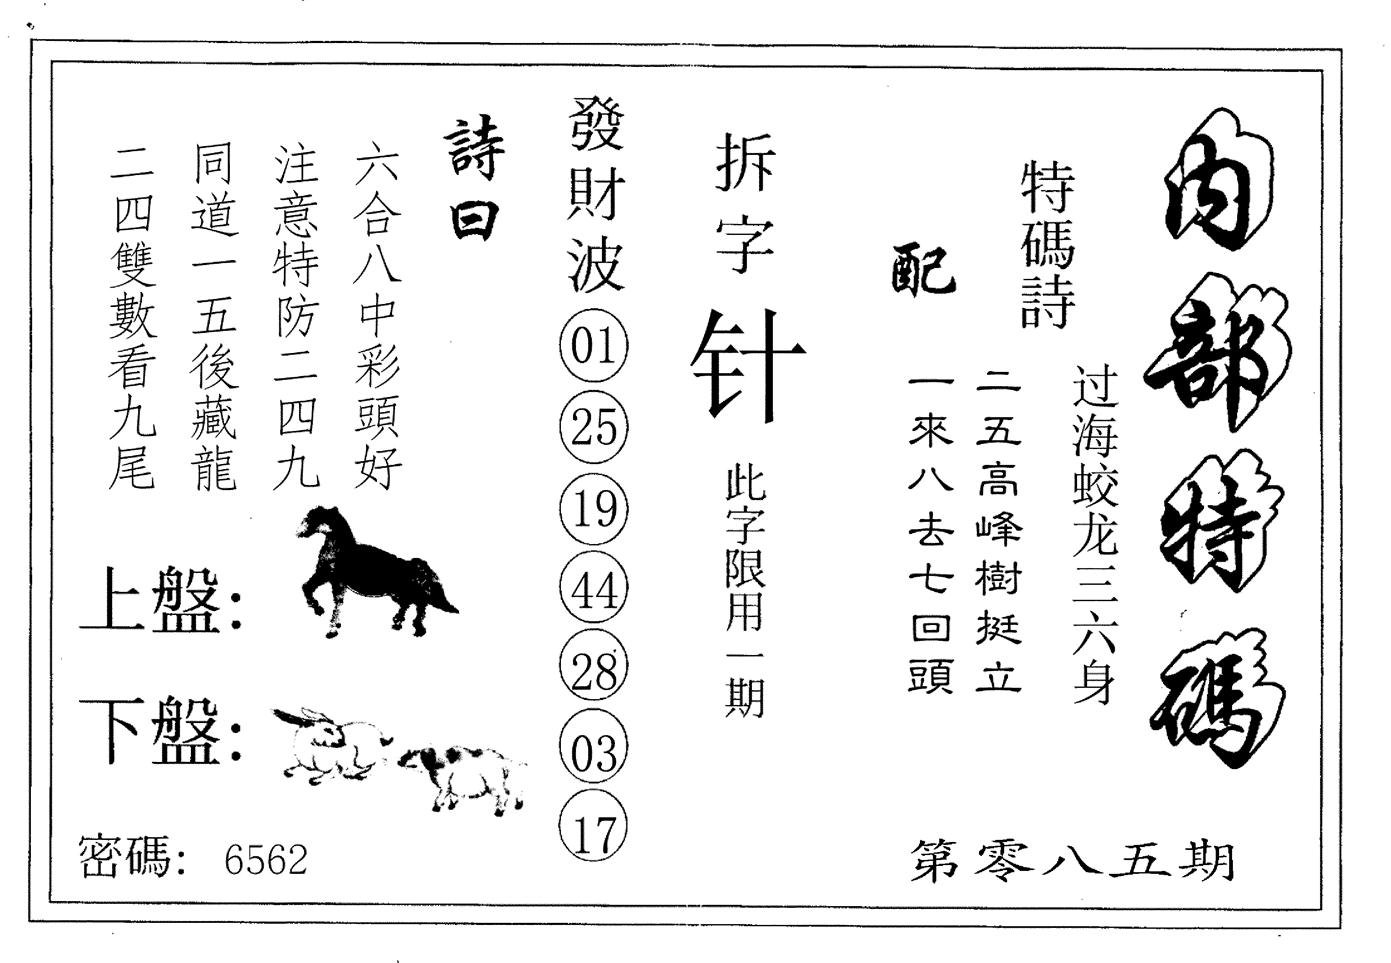 内部特碼
特碼詩
过海蛟龙三六身
配
二五高峰樹挺立
一來八去七回頭
第零八五期
拆字
针
此字限用一期
發財波
01
25
19
44
28
03
17
詩曰
六合八中彩頭好
注意特防二四九
同道一五後藏龍
二四雙數看九尾
上盤：
下盤：
密碼： 6562